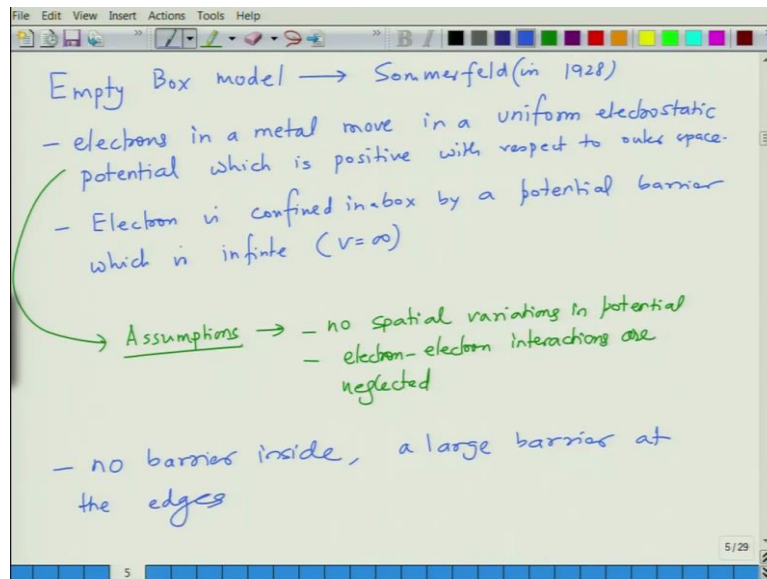 File Edit View Insert Actions Tools Help
Empty Box model → Sommerfeld (in 1928)
- electrons in a metal move in a uniform electrostatic
potential which is positive with respect to outer space.
- Electron is confined in a box by a potential barrier
which is infinte (V=∞)
Assumptions → - no spatial variations in potential
- electron-electron interactions are
neglected
- no barrier inside, a large barrier at
the edges
5/29
5